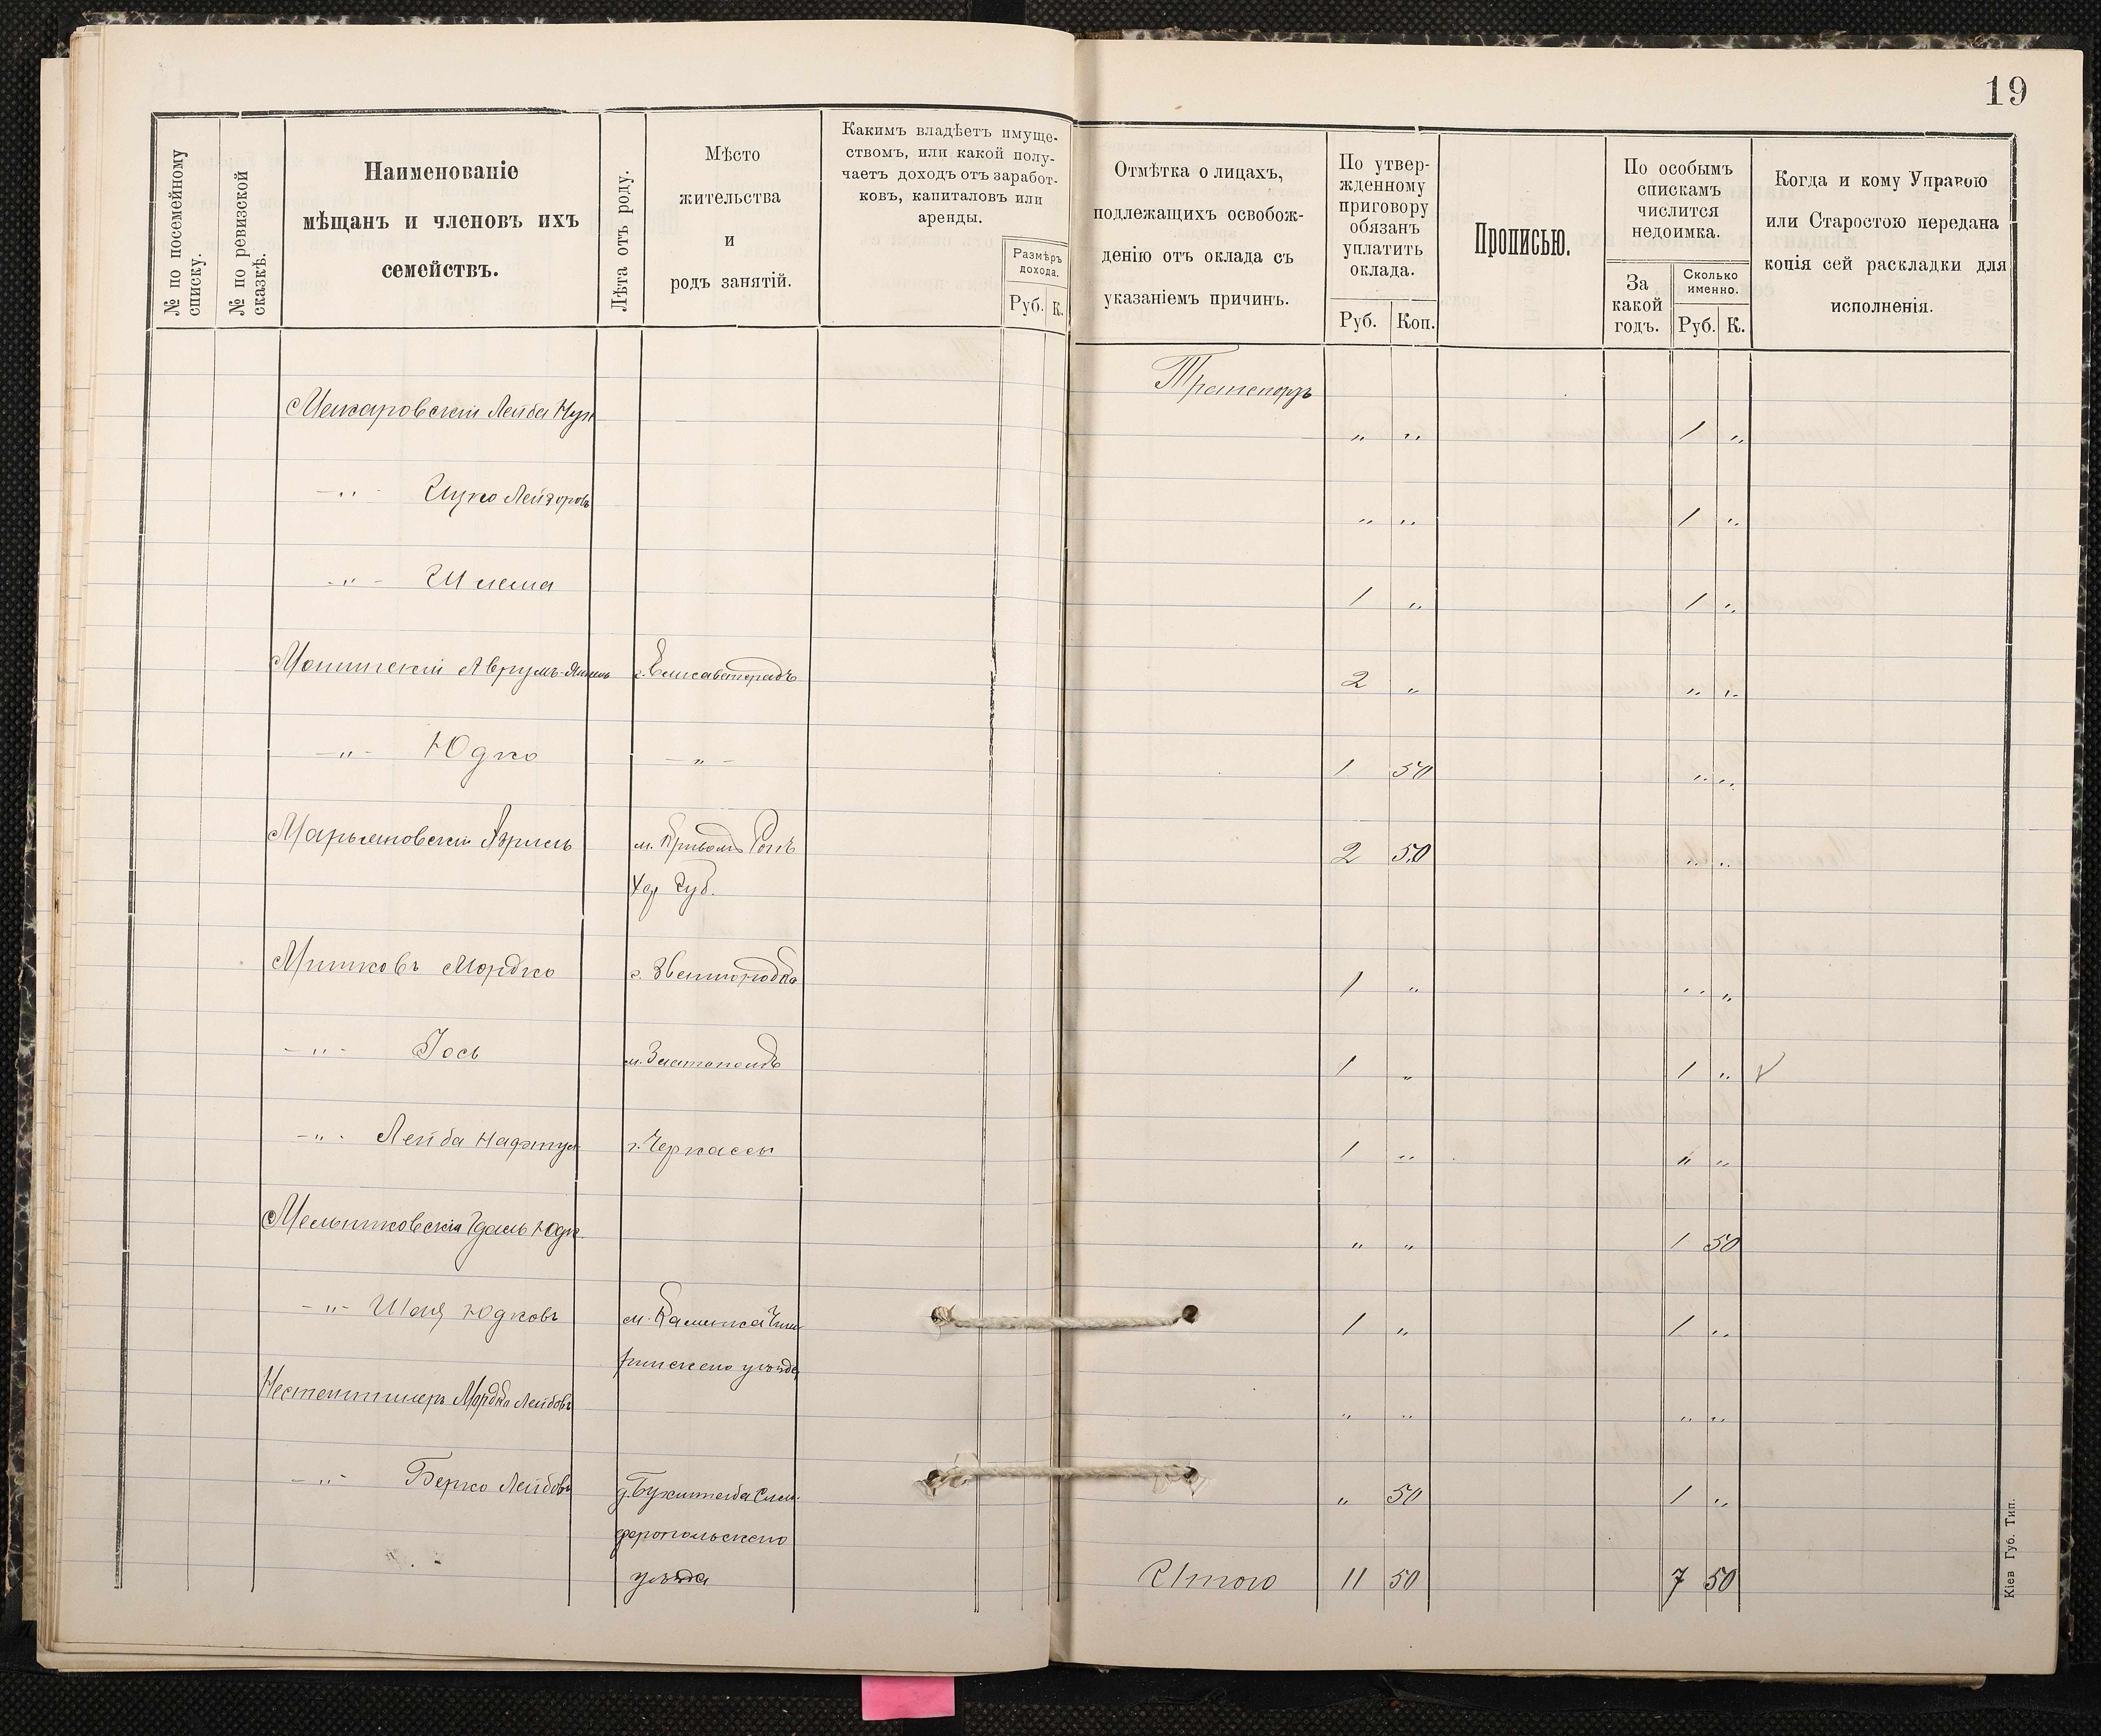 19
№ по посемейному списку.
№ по ревизской сказкѣ.
Наименованіе
мѣщанъ и членовъ ихъ
семействъ.
Лѣта отъ роду.
Мѣсто
жительства
и
родъ занятій.
Какимъ владѣетъ имуще-
ствомъ, или какой полу-
чаетъ доходъ отъ заработ-
ковъ, капиталовъ или
аренды.
Размѣръ
дохода.
Руб. К.
Отмѣтка о лицахъ,
подлежащихъ освобож-
денію отъ оклада съ
указаніемъ причинъ.
По утвер-
жденному
приговору
обязанъ
уплатить
оклада.
Руб. Коп.
Прописью.
По особымъ
спискамъ
числится
недоимка.
За
какой
годъ.
Сколько
именно.
Руб. К.
Когда и кому Управою
или Старостою передана
копія сей раскладки для
исполненія.
Транспортъ
Макаровскій Лейба Нух „ „ 1 „
-„- Ицко Лейзоровъ „ „ 1 „
-„- Шлема 1 „ 1 „
Мошинскій Аврумъ- г. Елисаветградъ 2 „ „ „
-„- Юдко -„- 1 50 „ „
Марьяновскій м. Кривомъ Рогѣ 2 50 „ „
Хер Губ.
Мишковъ Мордко г. Звенигородка 1 „ „ „
-„- Іось м. Златополь 1 „ 1 „ V
-„- Лейба г. Черкассы 1 „ „ „
Мельниковскій Юдк. „ „ 1 50
-„- Шая Юдковъ м. Каменка Чиги- 1 „ 1 „
ринскаго уѣзда
Мордко Лейбовъ „ „ „ „
-„- Берко Лейбовъ Сим- „ 50 1 „
феропольскаго
уѣзда
Итого 11 50 7 50
Кіев Губ. Тип.